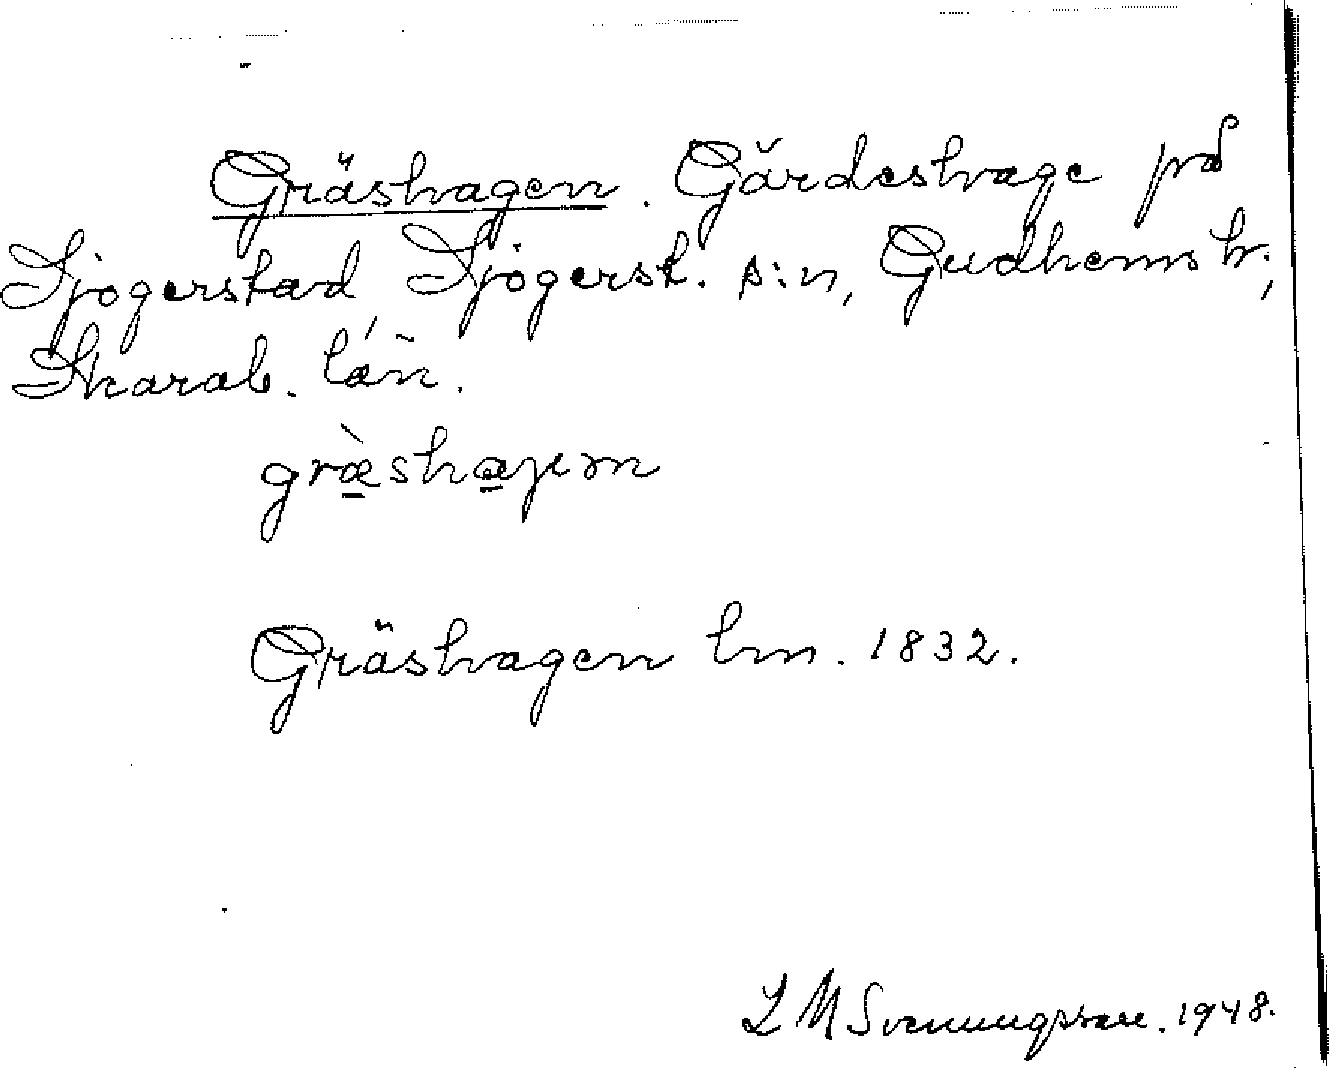 Gräshagen. Gärdeshage på
Sjögerstad Sjögerst. s:n, Gudhems h.,
Skarab. län.
græ̀shaɡen
Gräshagen lm. 1832.
L M Svenungsson. 1948.